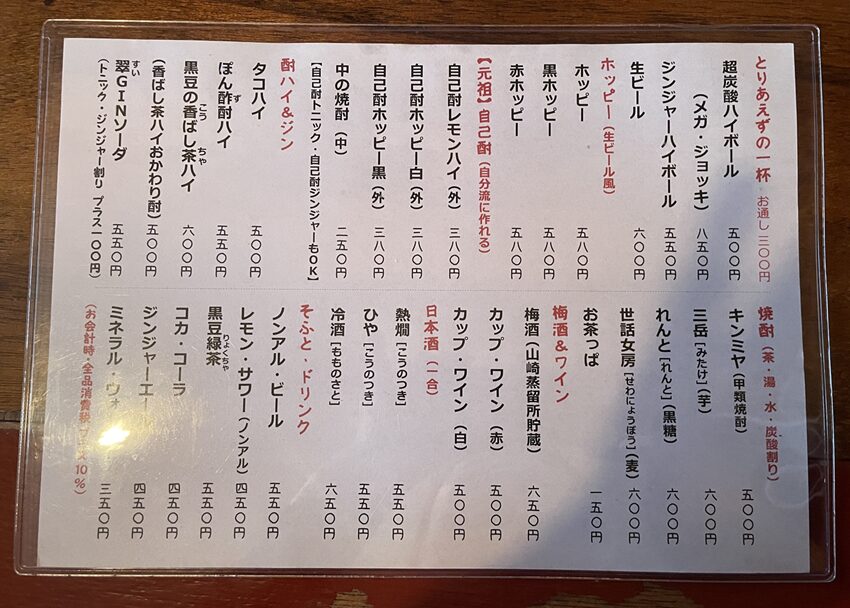 とりあえずの一杯 お通し 三〇〇円
超炭酸ハイボール 五〇〇円
(メガ・ジョッキ) 八五〇円
ジンジャーハイボール 五五〇円
生ビール 六〇〇円
ホッピー(生ビール風)
ホッピー 五八〇円
黒ホッピー 五八〇円
赤ホッピー 五八〇円
【元祖】自己酎(自分流に作れる)
自己酎レモンハイ(外) 三八〇円
自己酎ホッピー白(外) 三八〇円
自己酎ホッピー黒(外) 三八〇円
中の焼酎(中) 二五〇円
【自己酎トニック・自己酎ジンジャーもOK】
酎ハイ&ジン
タコハイ 五〇〇円
ぽん酢酎ハイ 五五〇円
黒豆の香ばし茶ハイ 六〇〇円
(香ばし茶ハイおかわり酎) 五〇〇円
翠GINソーダ 五五〇円
(トニック・ジンジャー割り プラス一〇〇円)
焼酎(茶・湯・水・炭酸割り)
キンミヤ(甲類焼酎) 五〇〇円
三岳[みたけ](芋) 六〇〇円
れんと[れんと](黒糖) 六〇〇円
世話女房[せわにょうぼう](麦) 六〇〇円
お茶っぱ 一五〇円
梅酒&ワイン
梅酒(山崎蒸留所貯蔵) 六五〇円
カップ・ワイン(赤) 五〇〇円
カップ・ワイン(白) 五〇〇円
日本酒(一合)
熱燗[こうのつき] 五五〇円
ひや[こうのつき] 五五〇円
冷酒[もものさと] 六五〇円
そふと・ドリンク
ノンアル・ビール 五五〇円
レモン・サワー(ノンアル) 四五〇円
黒豆緑茶 五五〇円
コカ・コーラ 四五〇円
ジンジャーエー 四五〇円
ミネラル・ウォ 三五〇円
(お会計時・全品消費税プラス10%)